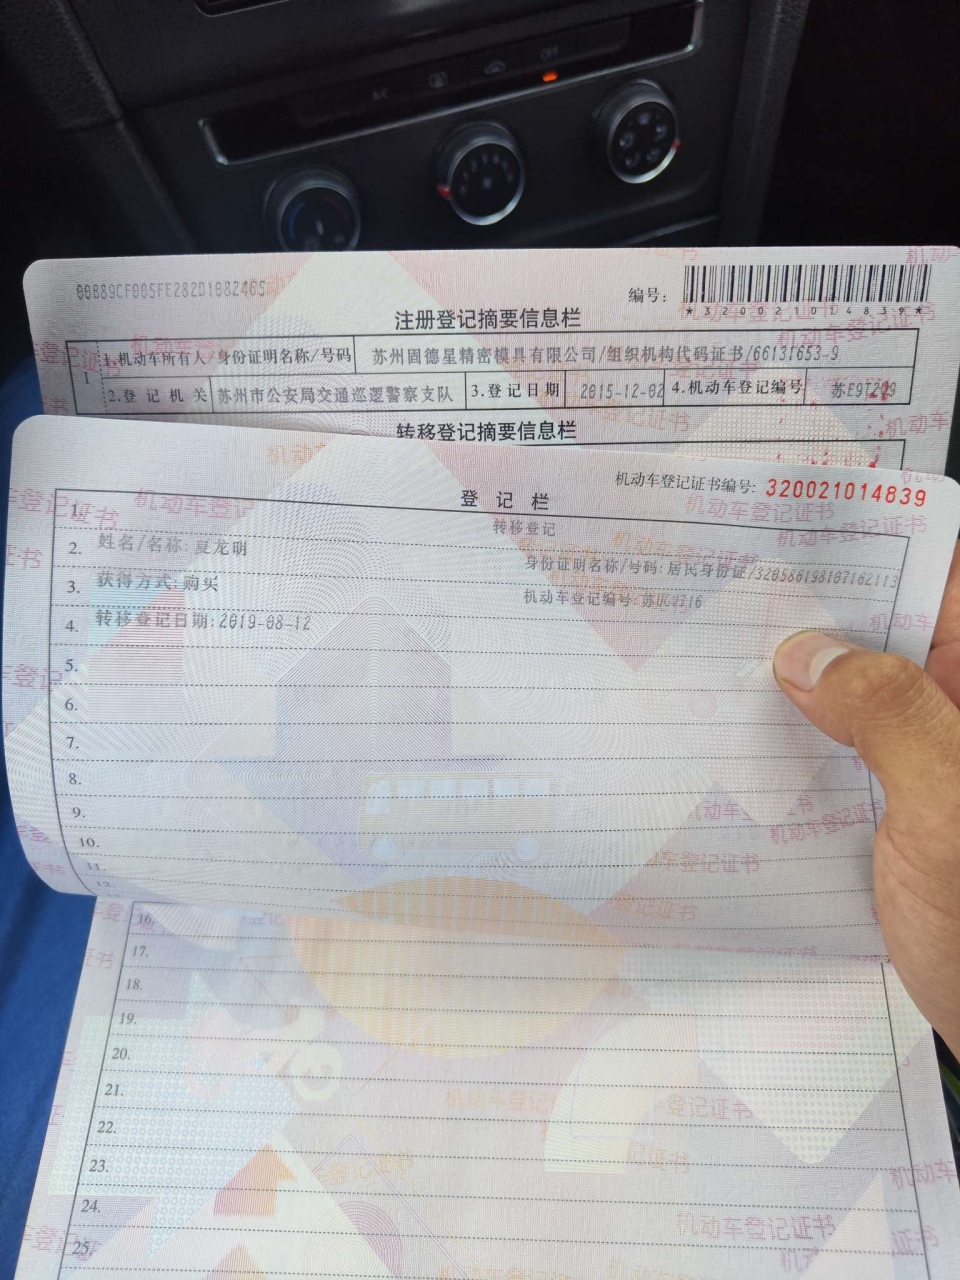 AC
OFF
00B89CF005FE282D1082465
编号:
*320021014839*
注册登记摘要信息栏
1
1.机动车所有人/身份证明名称/号码 苏州固德星精密模具有限公司/组织机构代码证书/66131653-9
2.登记机关 苏州市公安局交通巡逻警察支队 3.登记日期 2015-12-02 4.机动车登记编号
转移登记摘要信息栏
机动车登记证书编号: 320021014839
登记栏
1. 转移登记
2. 姓名/名称:夏龙明 身份证明名称/号码:居民身份证/320586198107162113
3. 获得方式:购买 机动车登记编号
4. 转移登记日期:2019-08-12
5.
6.
7.
8.
9.
10.
11.
12.
16.
17.
18.
19.
20.
21.
22.
23.
24.
25.